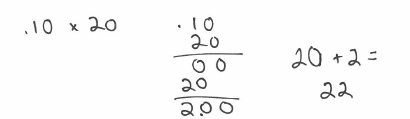 .10 x 20
.10
20
00
20
2.00
20 + 2 =
22